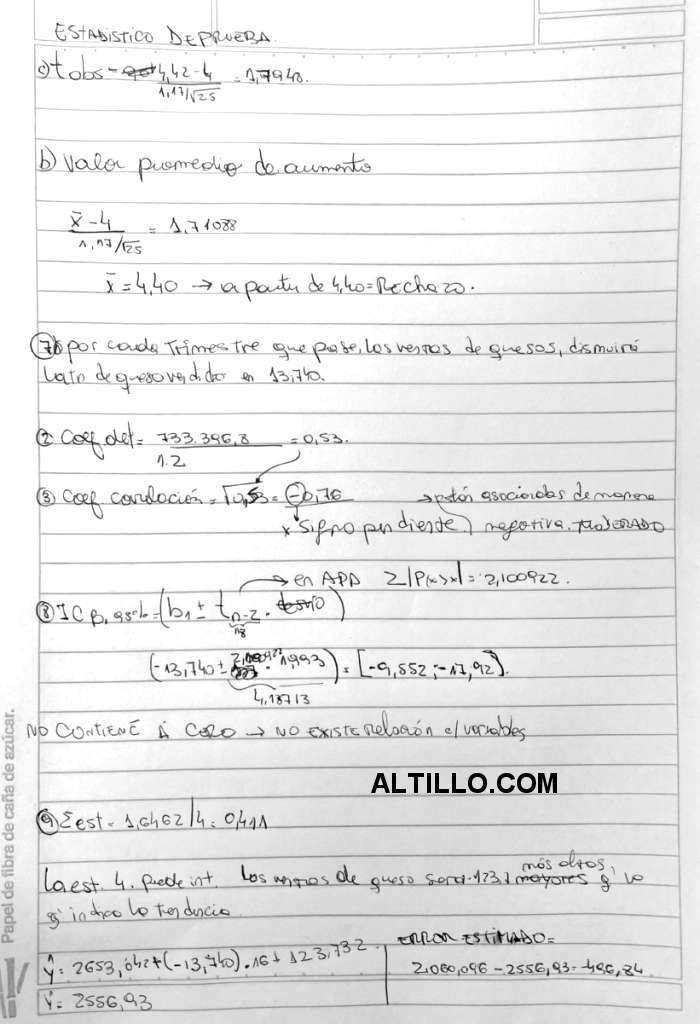 ESTADISTICO DE PRUEBA.
c) t obs = 4,42-4 = 1,7948.
1,17/√25
b) Valor promedio de aumento
x̄ - 4 = 1,71088
1,17/√25
x̄ = 4,40 → a partir de 4,40 = Rechazo.
7) por cada Trimestre que pase, las ventas de quesos, disminuirá
la tn de queso vendido en 13,740.
2) Coef det = 733.396,8 = 0,53.
1.2
3) Coef correlación = √0,53 = -0,76 → están asociadas de manera
x signo pendiente) negativa. MODERADO
→ en APP 2 |P(x>x| = 2,100922.
8) IC B1 95% = (b1 ± t n-2 . desvio)
18
(-13,740 ± 2,100922 . 1,993) = [-9,552 ; -17,92].
4,18713
NO CONTIENE Á CERO → NO EXISTE relación e/ variables
ALTILLO.COM
9) Σest = 1,6462/4 = 0,411
más altos,
La est. 4. puede int. Las ventas de queso será 123,7 mayores q' lo
q' indica la tendencia.
ŷ = 2653,042 + (-13,740) . 16 + 123,732.
ERROR ESTIMADO =
2.060,096 - 2556,93 = -496,84
ŷ = 2556,93
Papel de fibra de caña de azúcar.